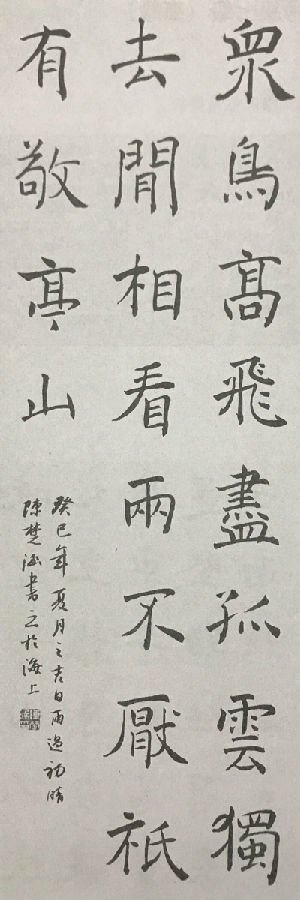 眾鳥髙飛盡孤雲獨
去閒相看兩不厭祇
有敬亭山
癸巳年夏月之吉日雨過初晴
陳楚書之於海上